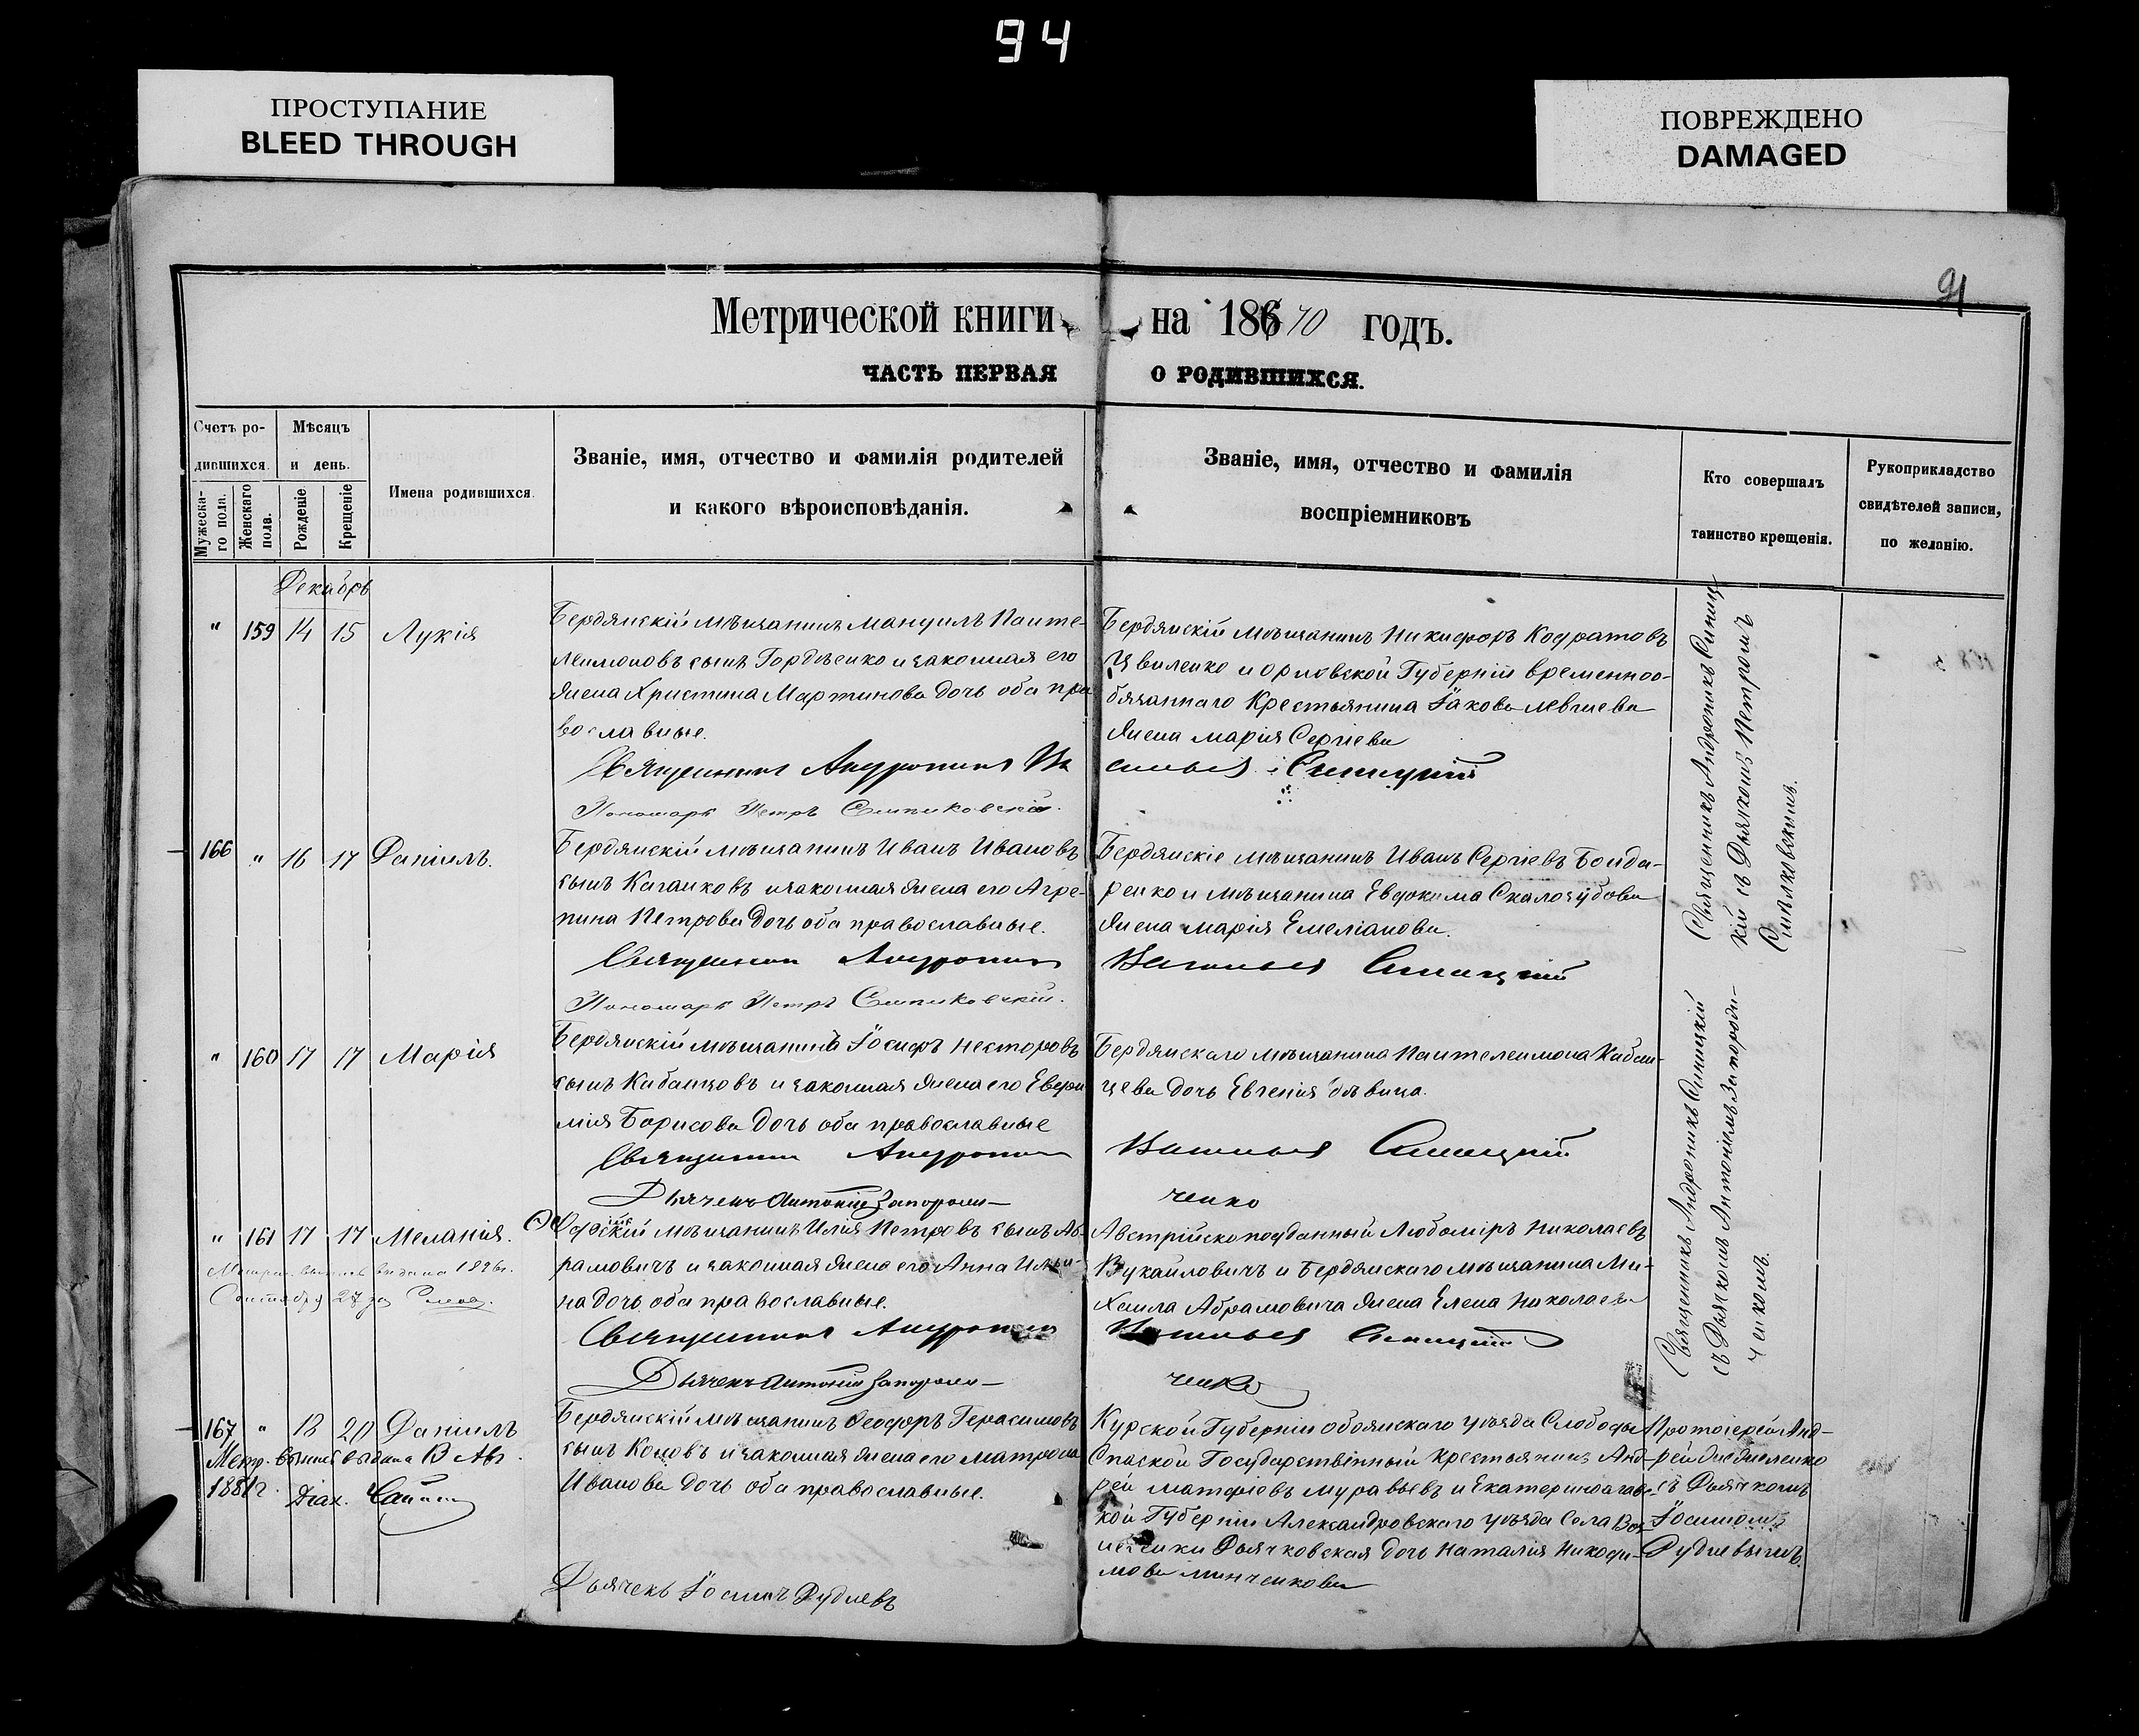 94
ПРОСТУПАНИЕ
BLEED THROUGH
ПОВРЕЖДЕНО
DAMAGED
91
Метрической книги на 18670 годъ.
ЧАСТЬ ПЕРВАЯ О РОДИВШИХСЯ.
Счетъ ро-
дившихся.
Мужеска-
го пола.
Женскаго
пола.
Мѣсяцъ
и день.
Рожденіе
Крещеніе
Имена родившихся.
Званіе, имя, отчество и фамилія родителей
и какого вѣроисповѣданія.
Званіе, имя, отчество и фамилія
воспріемниковъ
Кто совершалъ
таинство крещенія.
Рукоприкладство
свидѣтелей записи,
по желанію.
Декабрь
" 159 14 15 Лукія
Бердянскій мѣщанинъ Мануилъ Панте-
леимоновъ сынъ Гордѣенко и законная его
жена Христина Мартинова дочь оба пра
вославные.
Священникъ Андроникъ Ва
Пономарь Петръ
Бердянскій мѣщанинъ Никифоръ Кодратовъ
Цвиленко и Орловской Губерніи временноо-
бязаннаго Крестьянина Іакова
жена Марія Сергіева
сильевъ Синицкій
Священникъ Андроникъ Синиц
кій съ Дьячкомъ Петромъ
166 " 16 17 Даніилъ.
Бердянскій мѣщанинъ Иванъ Ивановъ
сынъ Каганковъ и законная жена его Агре-
пина Петрова дочь оба православные.
Священникъ Андроникъ
Пономарь Петръ
Бердянскіе мѣщанинъ Иванъ Сергіевъ Бонда-
ренко и мѣщанина Евдокима Скалозубова
жена Марія Емеліанова.
Васильевъ Синицкій
" 160 17 17 Марія
Бердянскій мѣщанинъ Іосифъ Несторовъ
сынъ Кабанцовъ и законная жена его Евфи
мія Борисова дочь оба православные
Священникъ Андроникъ
Дьячекъ Антоній Запорожи-
Бердянскаго мѣщанина Пантелеимона Кабан-
цева дочь Евгенія дѣвица.
Васильевъ Синицкій
ченко
Священникъ Андроникъ Синицкій
съ Дьячкомъ Антоніемъ Запорожи-
ченкомъ.
" 161 17 17 Меланія.
выпись выдана 1896г.
Сентября 27
мѣщанинъ Илія Петровъ сынъ Аб-
рамовичъ и законная жена его Анна Ильи-
на дочь оба православные.
Священникъ Андроникъ
Дьячекъ Антоній Запорожи-
Австрійскоподданный Любоміръ Николаевъ
Вукаиловичъ и Бердянскаго мѣщанина Ми-
хаила Абрамовича жена Елена Николаева
Васильевъ Синицкій
ченко
167 " 18 20 Даніилъ
Метр. выпись выдана 13 Авг.
1881г. Діак.
Бердянскій мѣщанинъ Ѳеодоръ Герасимовъ
сынъ Коновъ и законная жена его Матрона
Иванова дочь оба православные.
Дьячекъ Іосифъ Рудневъ
Курской Губерніи Обоянскаго уѣзда Слободы
Спаской Государственный крестьянинъ Анд-
рей Матѳіовъ Муравьевъ и Екатеринославс-
кой Губерніи Александровскаго уѣзда Села Воз
несенки Дьячковская дочь Наталія Никоди-
мова Минченкова
Протоіерей Анд-
рей
съ Дьячкомъ
Іосифомъ
Рудневымъ.